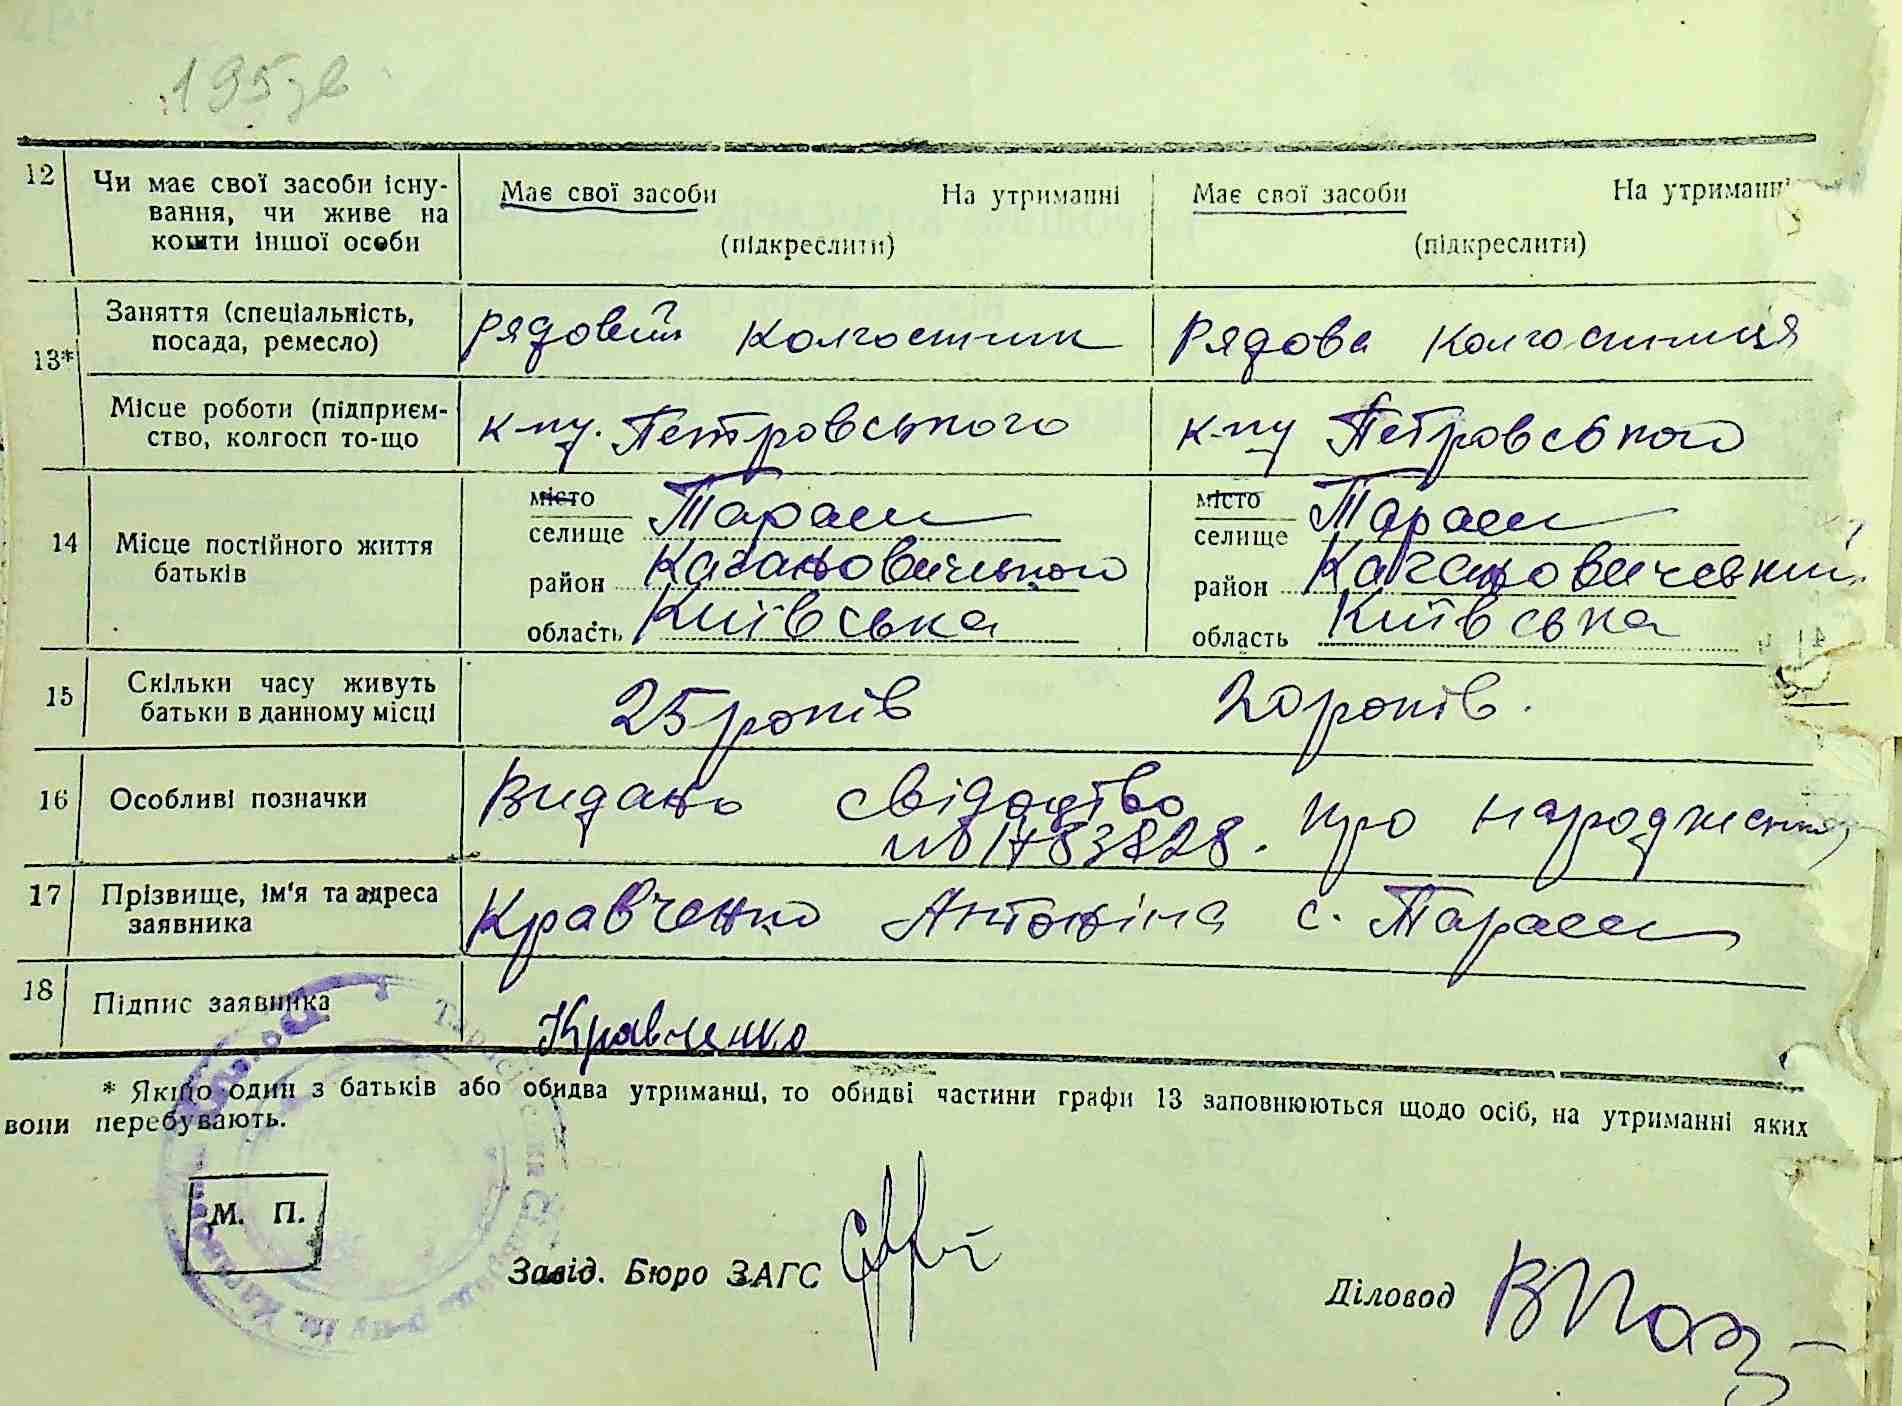 195зв
12 Чи має свої засоби існу- Має свої засоби На утриманні Має свої засоби На утриманні
вання, чи живе на
кошти іншої особи (підкреслити) (підкреслити)
13* Заняття (спеціальність, рядовий колгоспник Рядова колгоспниця
посада, ремесло)
Місце роботи (підприєм- к-пу. Петровського к-пу Петровського
ство, колгосп то-що
14 Місце постійного життя батьків
місто місто
селище Тараси селище Тараси
район Кагановичського район Кагановичевський
область Київська область Київська
15 Скільки часу живуть 25 років 20 років.
батьки в данному місці
16 Особливі позначки Видано свідоцтво про народження
№ 1783828.
17 Прізвище, ім'я та адреса Кравченко Антоніна с. Тараси
заявника
18 Підпис заявника Кравченко
* Якщо один з батьків або обидва утриманці, то обидві частини графи 13 заповнюються щодо осіб, на утриманні яких
вони перебувають.
М. П.
Завід. Бюро ЗАГС
Діловод